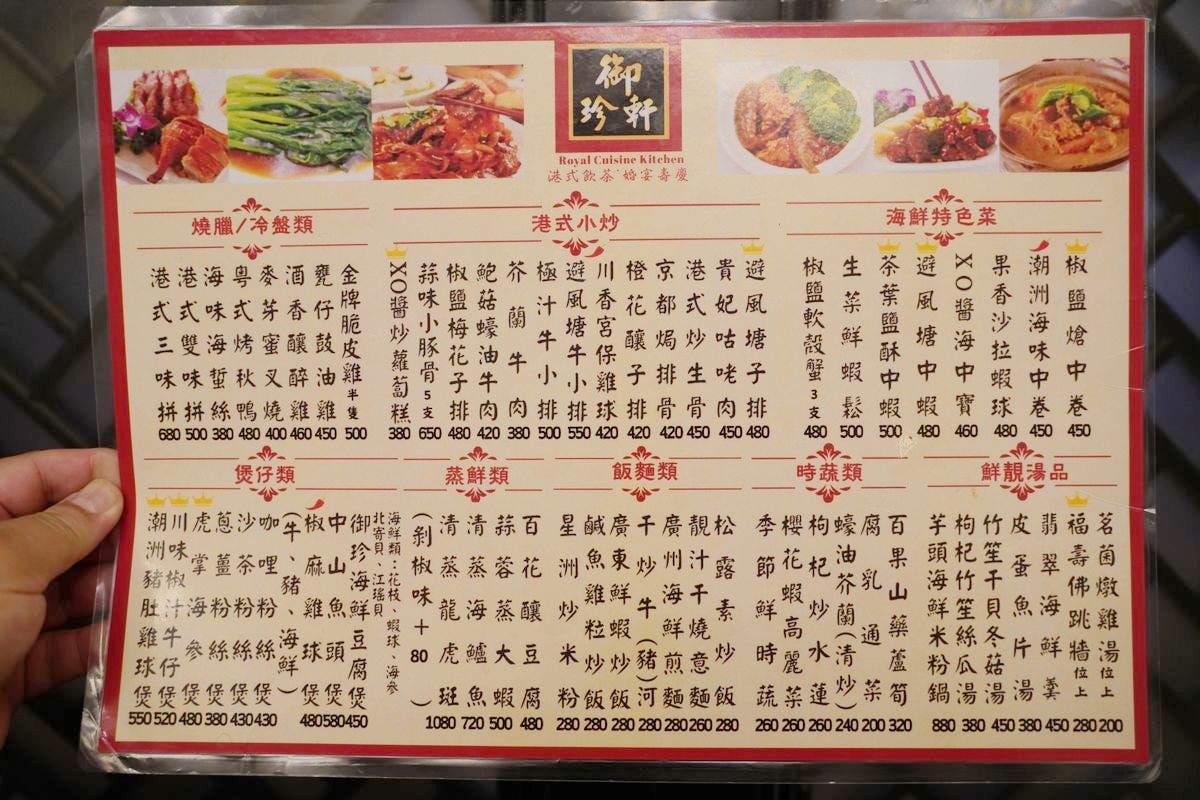 御珍軒
Royal Cuisine Kitchen
港式飲茶˙婚宴壽慶
燒臘/冷盤類
金牌脆皮雞半隻 500
甕仔鼓油雞 450
酒香釀醉雞 460
麥芽蜜叉燒 400
粵式烤秋鴨 480
海味海蜇絲 380
港式雙味拼 500
港式三味拼 680
港式小炒
避風塘子排 480
貴妃咕咾肉 450
港式炒生骨 450
京都焗排骨 420
橙花釀子排 420
川香宮保雞球 420
避風塘牛小排 550
極汁牛小排 500
芥蘭牛肉 380
鮑菇蠔油牛肉 420
椒鹽梅花子排 480
蒜味小豚骨5支 650
XO醬炒蘿蔔糕 380
海鮮特色菜
椒鹽熗中卷 450
潮洲海味中卷 450
果香沙拉蝦球 480
XO醬海中寶 460
避風塘中蝦 480
茶葉鹽酥中蝦 500
生菜鮮蝦鬆 500
椒鹽軟殼蟹3支 480
煲仔類
海鮮類：花枝、蝦球、海參
北寄貝、江瑤貝
御珍海鮮豆腐煲 450
中山魚頭煲 580
椒麻雞球煲 480
(牛、豬、海鮮)
咖哩粉絲煲 430
沙茶粉絲煲 430
蔥薑粉絲煲 380
虎掌海參煲 480
川味椒汁牛仔煲 520
潮洲豬肚雞球煲 550
蒸鮮類
百花釀豆腐 480
蒜蓉蒸大蝦 500
清蒸海鱸魚 720
清蒸龍虎斑 1080
(剁椒味+80)
飯麵類
松露素炒飯 280
靚汁干燒意麵 260
廣州海鮮煎麵 280
干炒牛(豬)河 280
廣東鮮蝦炒飯 280
鹹魚雞粒炒飯 280
星洲炒米粉 280
時蔬類
百果山藥蘆筍 320
腐乳通菜 200
蠔油芥蘭(清炒) 240
枸杞炒水蓮 260
櫻花蝦高麗菜 260
季節鮮時蔬 260
鮮靚湯品
茗菌燉雞湯位上 200
福壽佛跳牆位上 280
翡翠海鮮羹 450
皮蛋魚片湯 380
竹笙干貝冬菇湯 450
枸杞竹笙絲瓜湯 380
芋頭海鮮米粉鍋 880